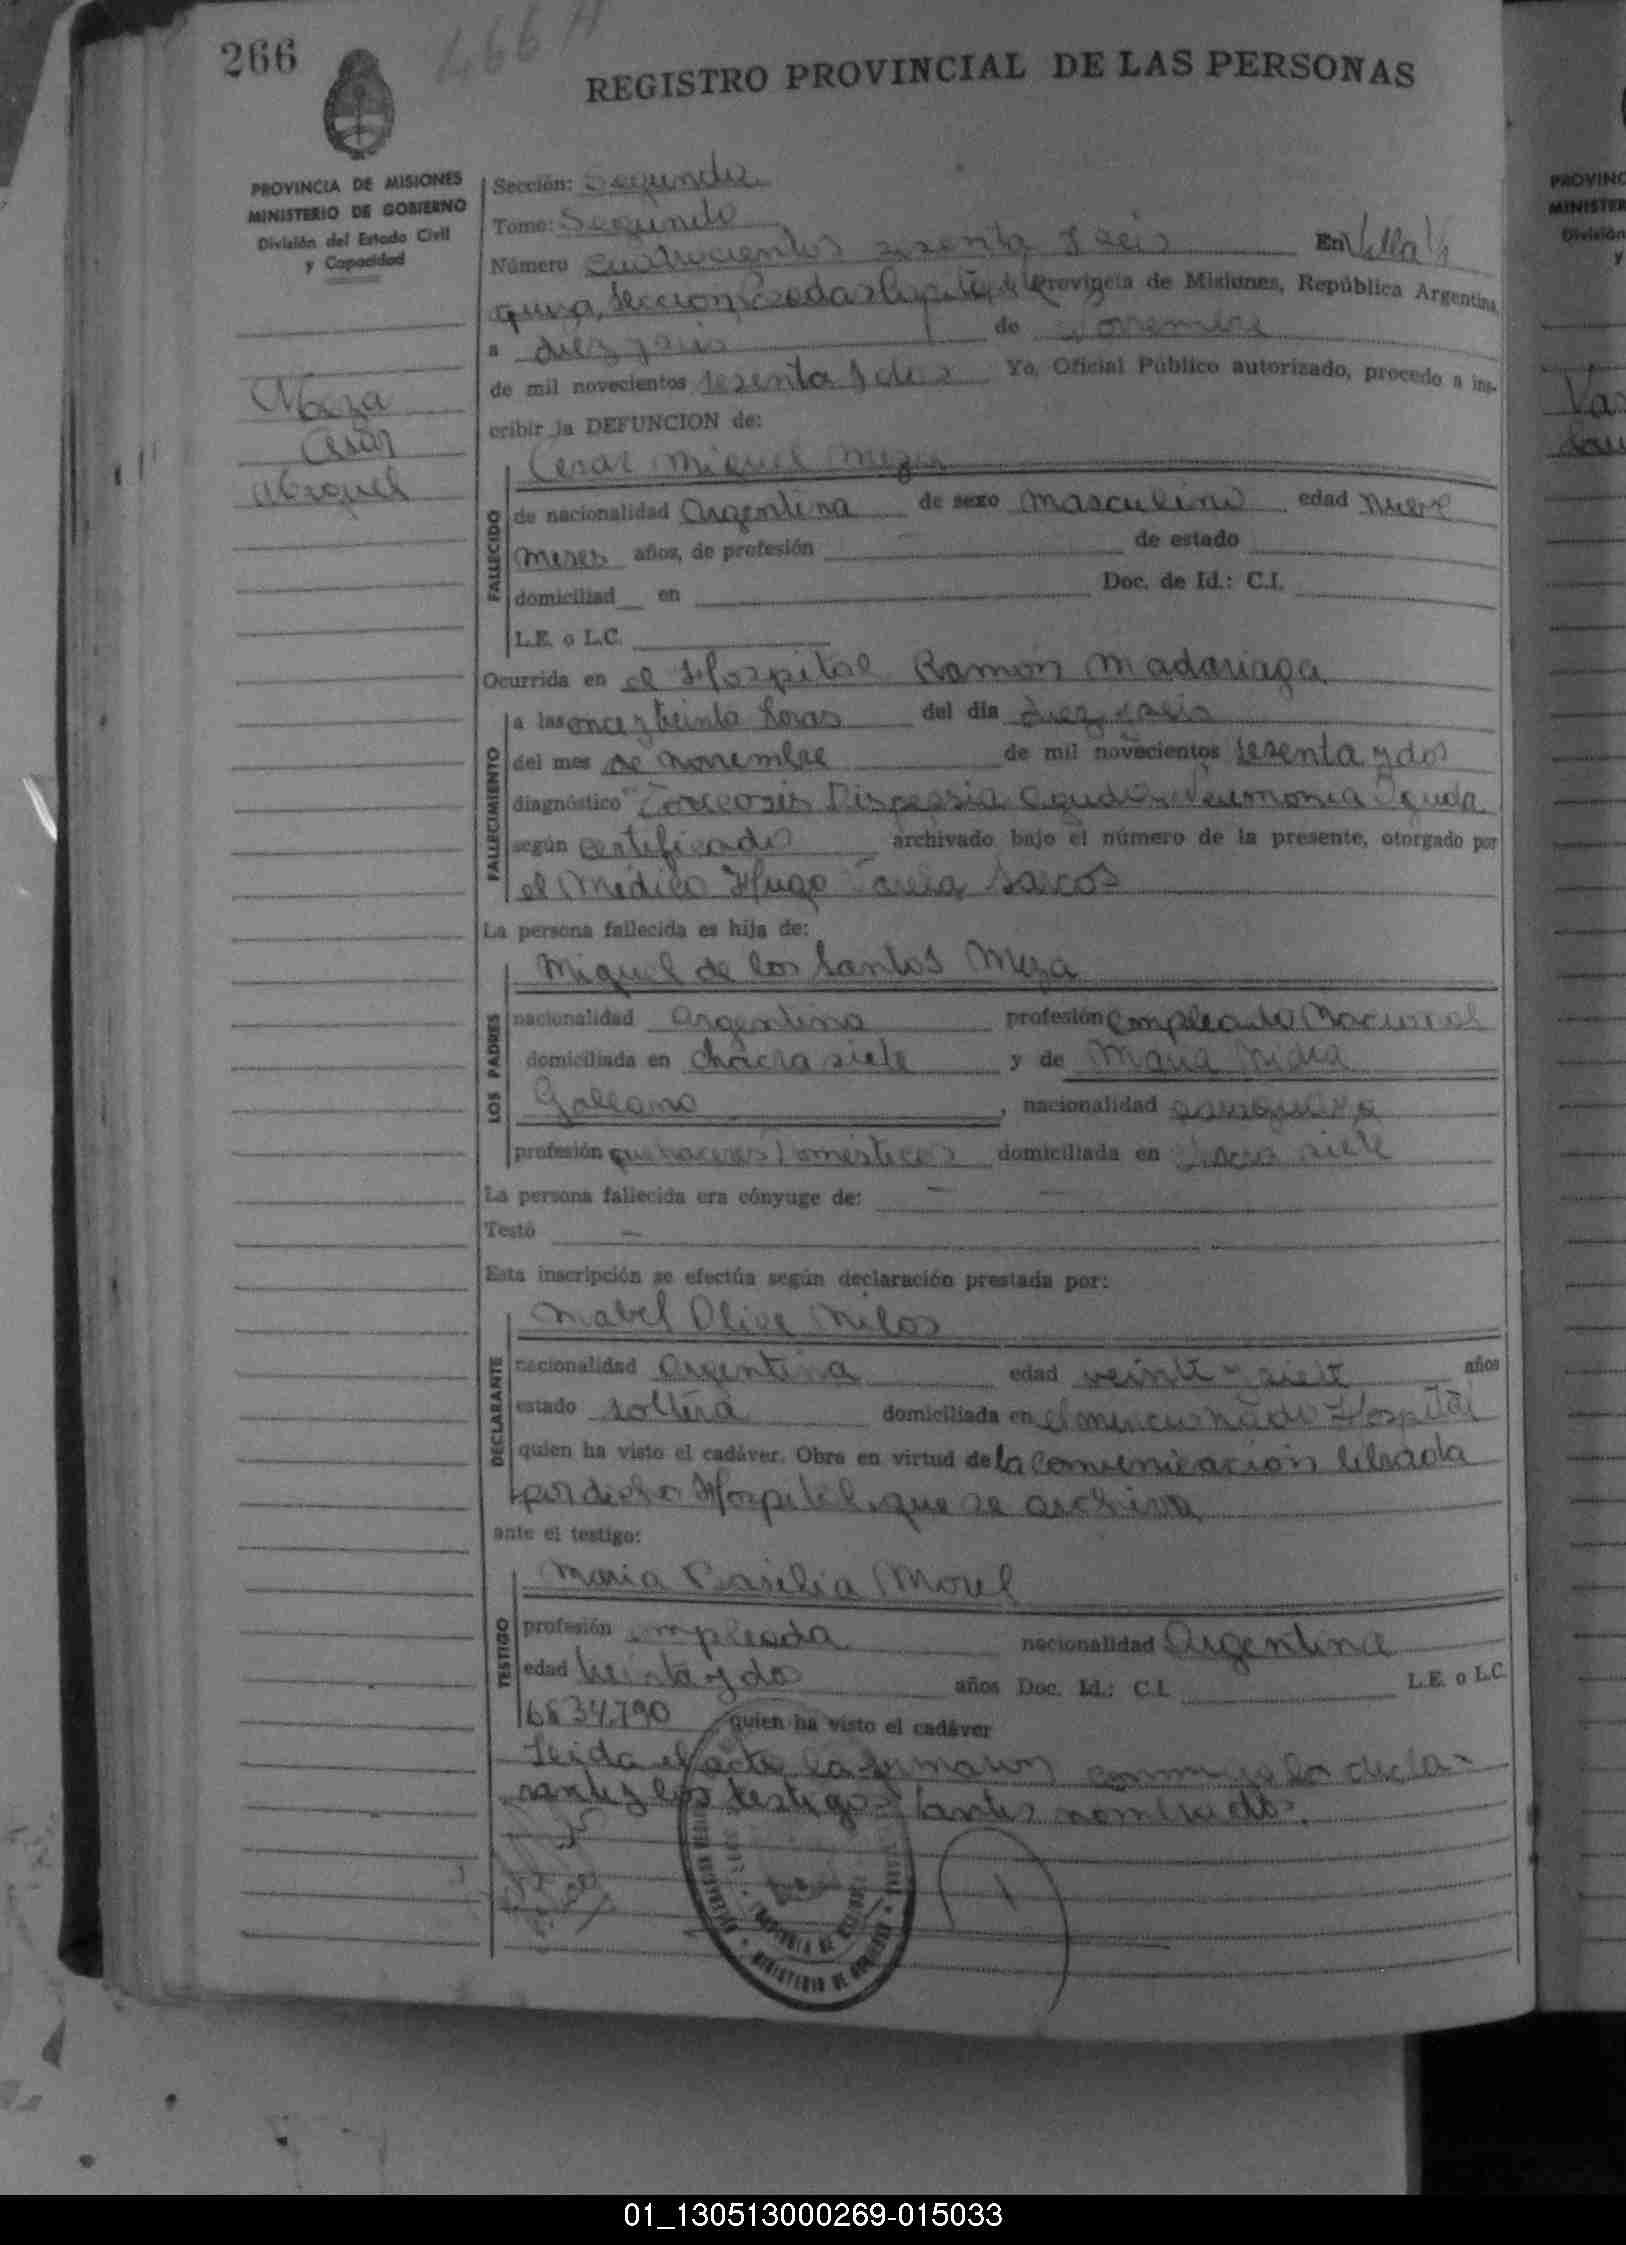 266
466 A
REGISTRO PROVINCIAL DE LAS PERSONAS
PROVINCIA DE MISIONES
MINISTERIO DE GOBIERNO
División del Estado Civil
y Capacidad
Meza
Cesar
Miguel
Sección: Segunda
Tomo: Segundo
Número cuatrocientos sesenta y seis En Villa
Sección Posadas Provincia de Misiones, República Argentina,
a diez y seis de Noviembre
de mil novecientos sesenta y dos Yo, Oficial Público autorizado, procedo a ins-
cribir la DEFUNCION de:
FALLECIDO
Cesar Miguel Meza
de nacionalidad Argentina de sexo masculino edad nueve
meses años, de profesión de estado
domiciliad en Doc. de Id.: C.I.
L.E. o L.C.
Ocurrida en el Hospital Ramón Madariaga
FALLECIMIENTO
a las once y treinta horas del día diez y seis
del mes de noviembre de mil novecientos sesenta y dos
diagnóstico Toxicosis Dispepsia Aguda Neumonia Aguda
según certificado archivado bajo el número de la presente, otorgado por
el Médico Hugo
La persona fallecida es hija de:
LOS PADRES
Miguel de los Santos Meza
nacionalidad Argentina profesión Empleado Nacional
domiciliada en chacra siete y de Maria
nacionalidad paraguaya
profesión quehaceres Domésticos domiciliada en chacra siete
La persona fallecida era cónyuge de: —
Testó —
Esta inscripción se efectúa según declaración prestada por:
DECLARANTE
Mabel Olive
nacionalidad Argentina edad veinte y siete años
estado soltera domiciliada en el mencionado Hospital
quien ha visto el cadáver. Obra en virtud de la comunicación librada
por dicho Hospital, que se archiva
ante el testigo:
TESTIGO
Maria Basilia Morel
profesión empleada nacionalidad Argentina
edad treinta y dos años Doc. Id.: C.I. L.E. o L.C.
6834.790 quien ha visto el cadáver
Leida el acta la firmaron conmigo la decla-
rante y los testigos antes nombrados.
MINISTERIO DE GOBIERNO
PROVINCIA DE MISIONES
PROVINC
MINISTER
División
y
01_130513000269-015033